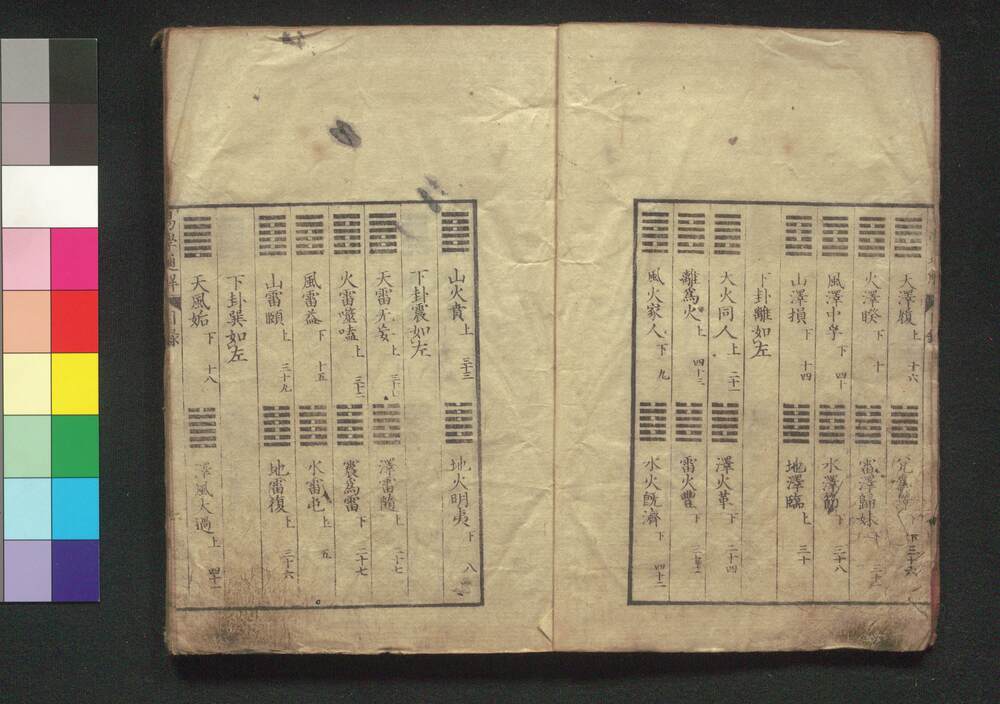 天澤履 上 十六
火澤睽 下 十
風澤中孚 下 四十
山澤損 下 十四
下三十六
雷澤歸妹
水澤節 下 三十八
地澤臨 上 三十
下卦離如左
天火同人 上 二十一
離爲火 上 四十三
風火家人 下 九
澤火革 下 二十四
雷火豐 下
水火既濟 下 四十二
山火賁 上 三十三
地火明夷 下 八
下卦震如左
天雷无妄 上
火雷噬嗑 上 三十二
風雷益 下 十五
山雷頤 上 三十九
澤雷隨 上 二十七
震爲雷 下 二十七
水雷屯 上 五
地雷復 上 三十六
下卦巽如左
天風姤 下 十八
澤風大過 上 四十一
易學通解 目録